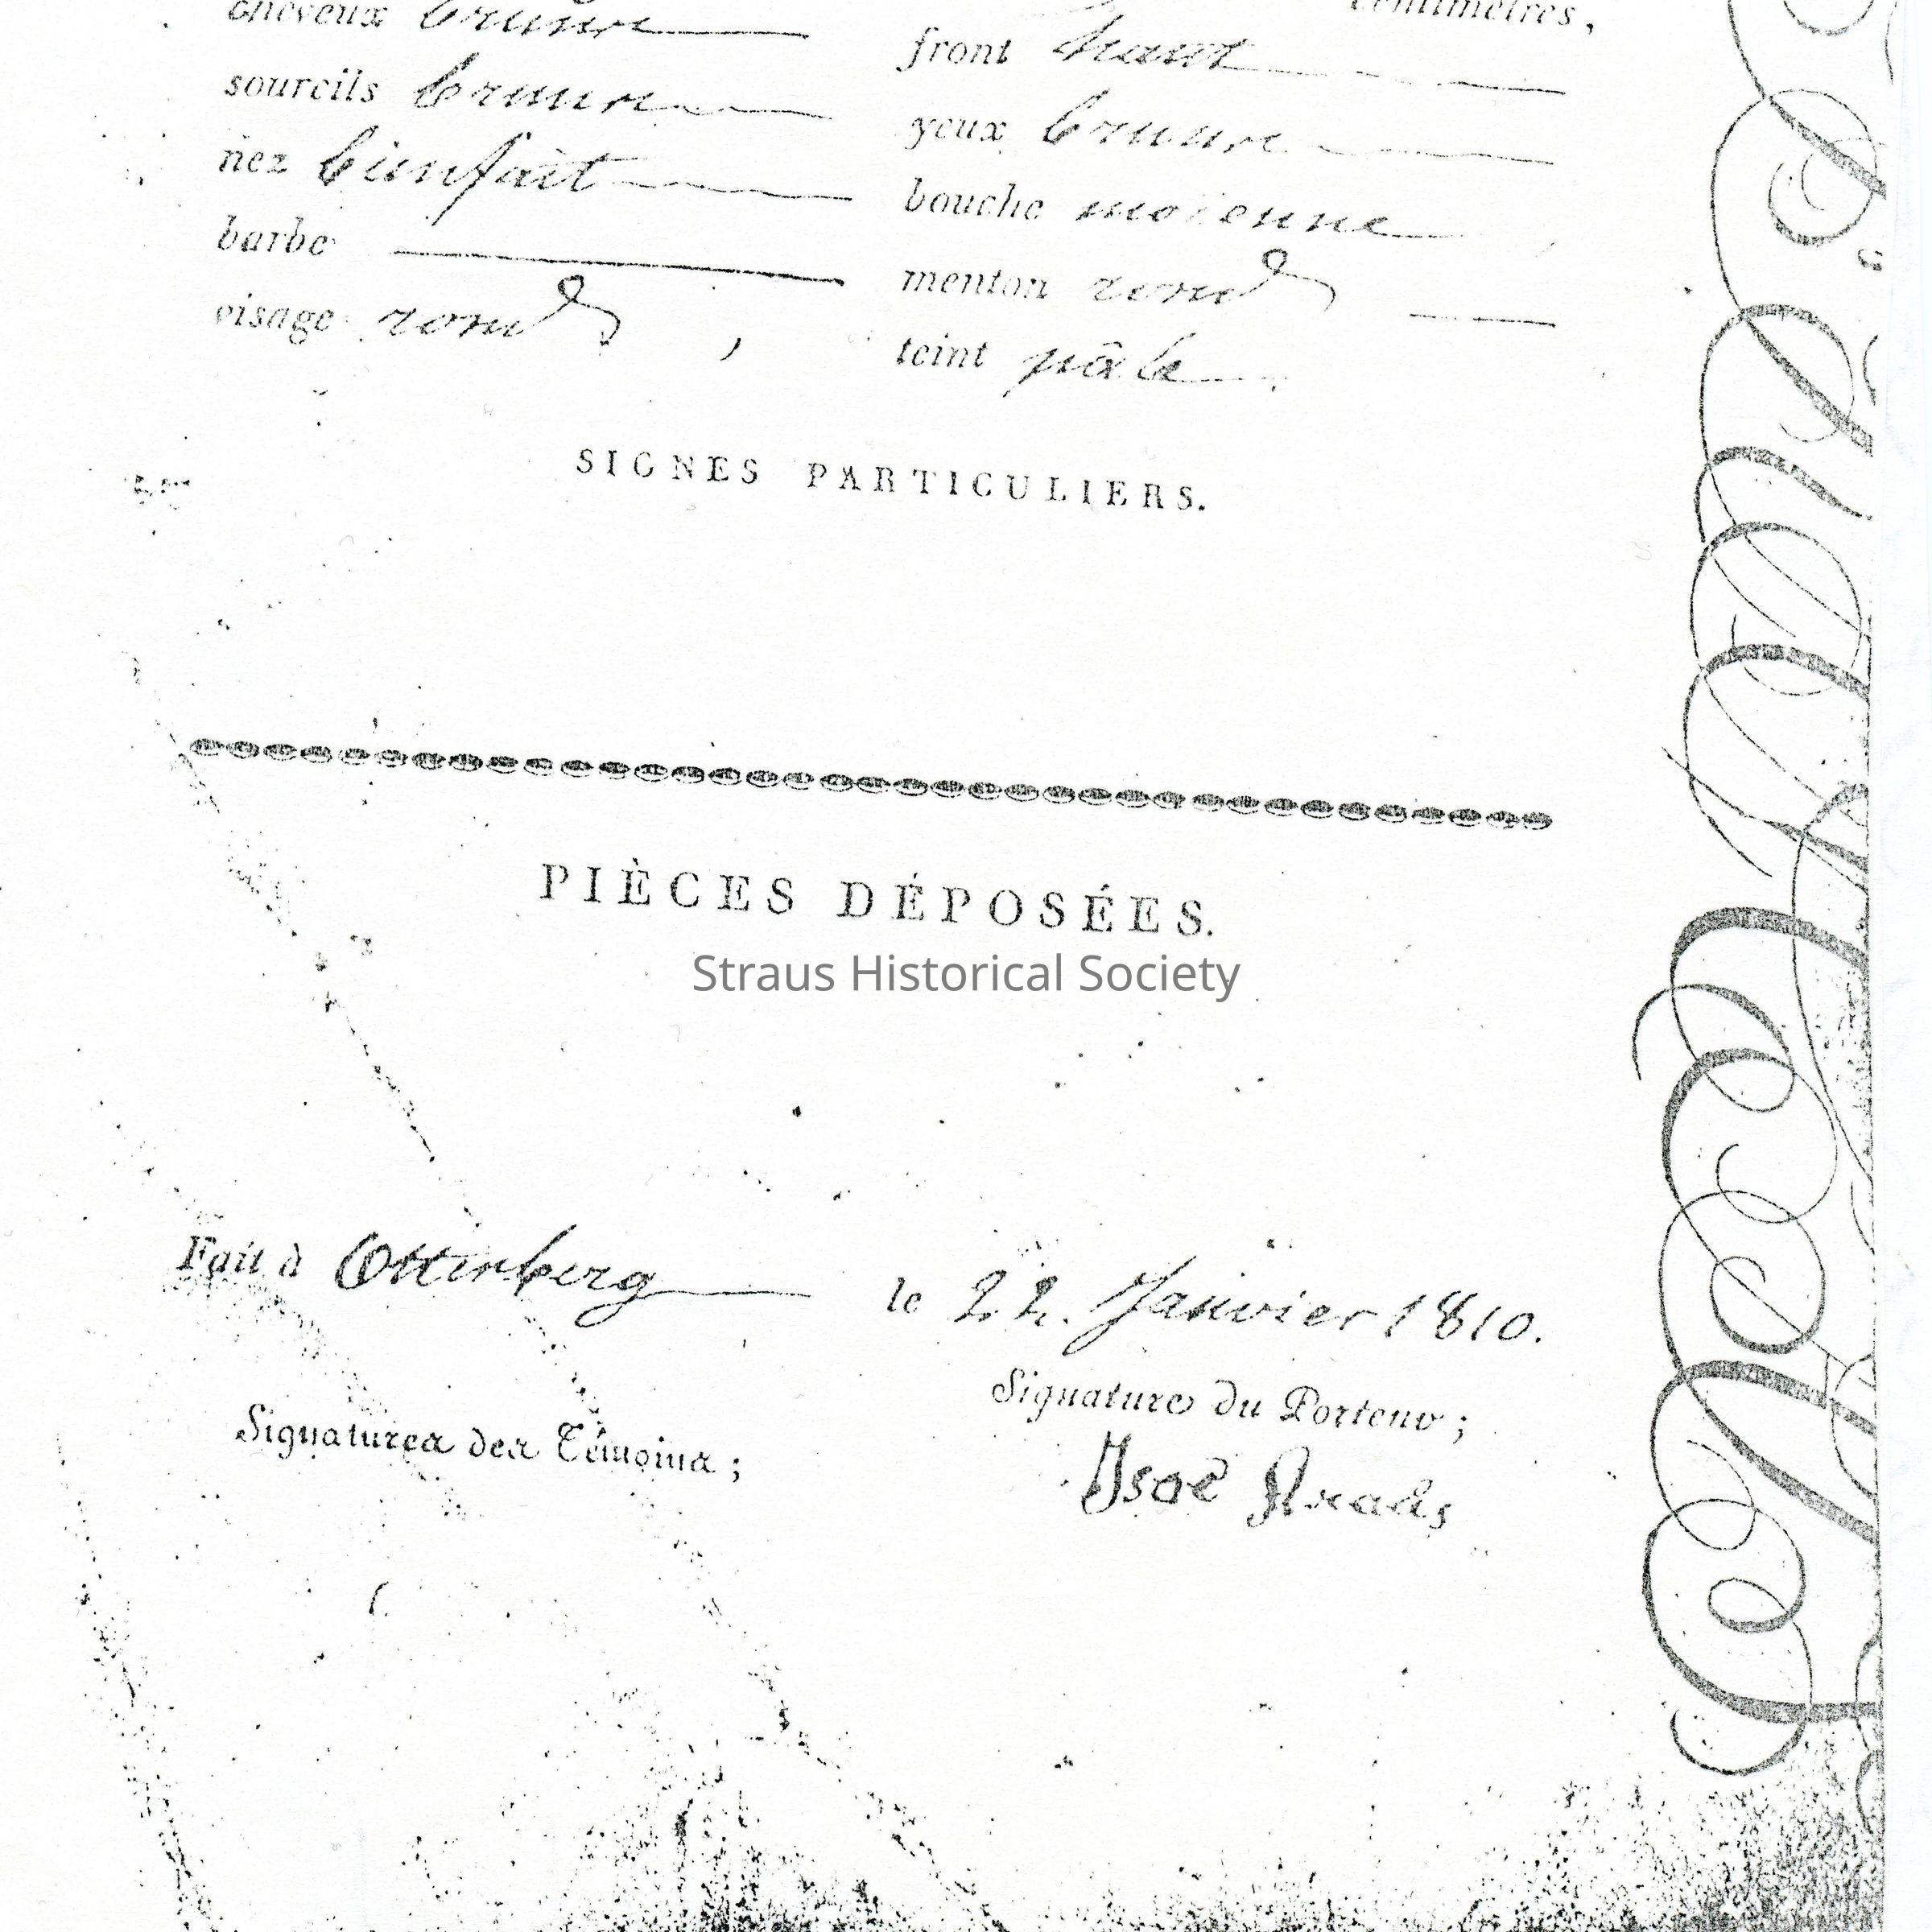 cheveux bruns centimètres,
sourcils bruns front haut
nez bienfait yeux bruns
barbe bouche moïenne
visage rond , menton rond
teint pâle.
SIGNES PARTICULIERS.
PIÈCES DÉPOSÉES.
Straus Historical Society
Fait à Otterberg le 22. Janvier 1810.
Signature du Porteur ;
Signatures des Témoins ;